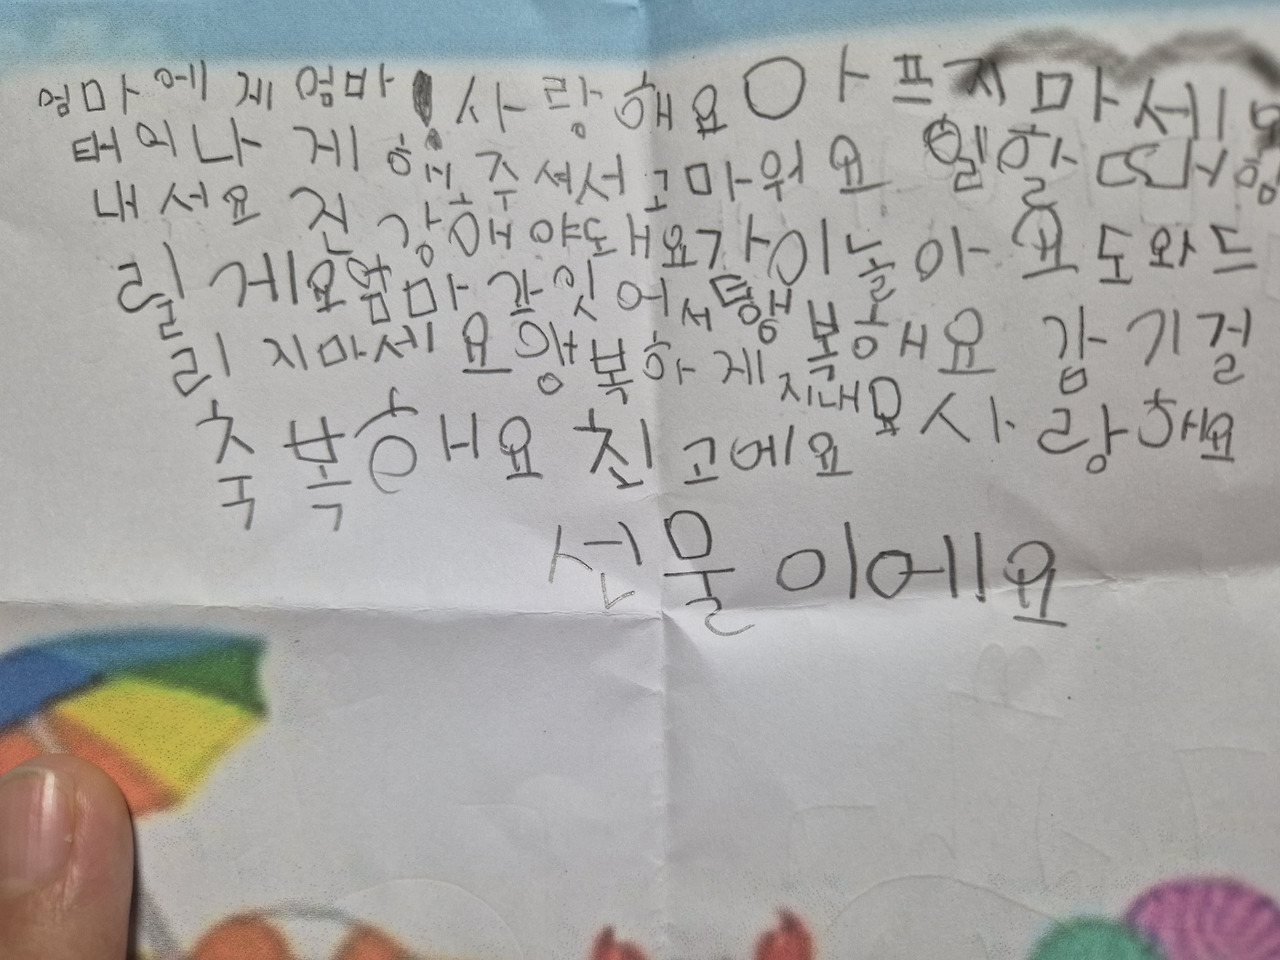 엄마에게 엄마! 사랑해요 아프지마세요
태어나게 해주셔서 고마워요 할 힘
내세요 건강해야도해요 가이놀아요 도와드
릴게요 엄마 같잇어서 행복해요 감기걸
리지마세요 행복하게 지내요 사랑해요
축복해요 최고에요
선물이에요